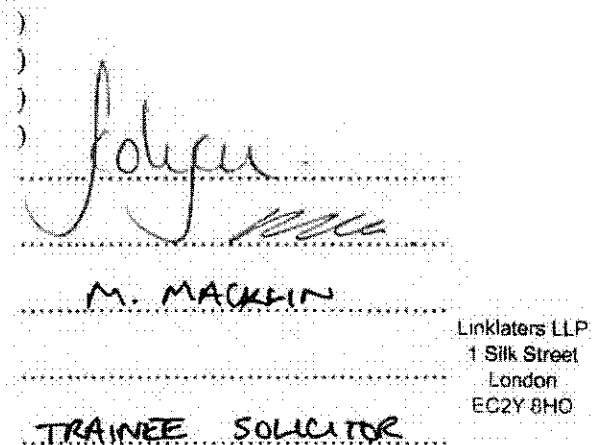 )
)
)
)
M. MACKLIN
Linklaters LLP
1 Silk Street
London
EC2Y 8HQ
TRAINEE SOLICITOR